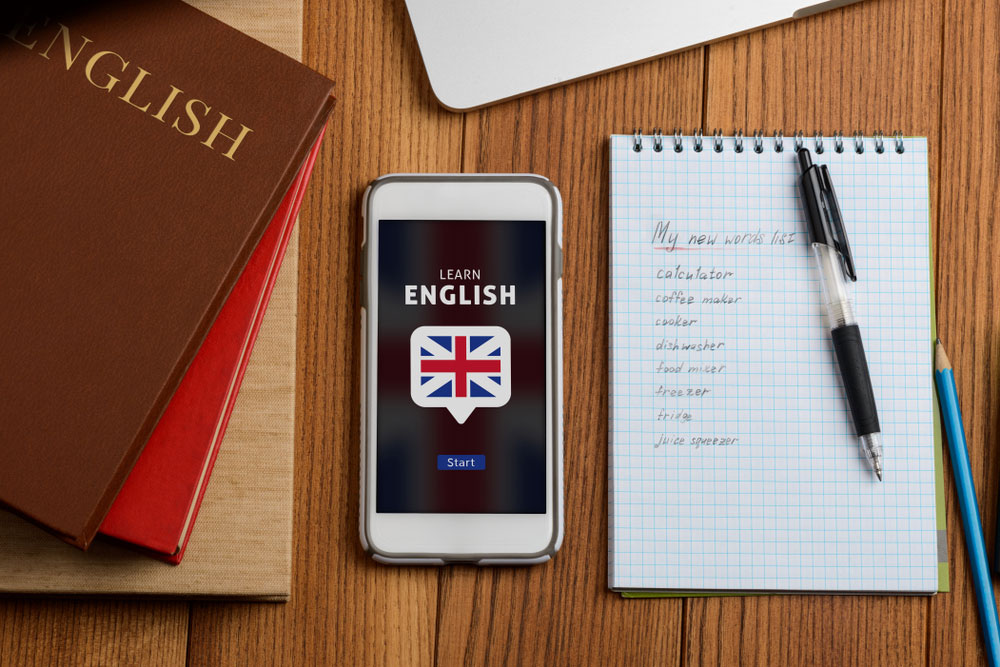 ENGLISH
LEARN
ENGLISH
Start
My new words list
calculator
coffee maker
cooker
dishwasher
food mixer
freezer
fridge
juice squeezer